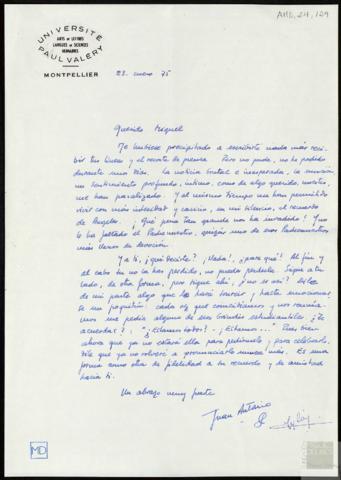 UNIVERSITÉ
ARTS ET LETTRES
LANGUES et SCIENCES
HUMAINES
PAUL VALÉRY
MONTPELLIER
23. enero 75
Querido Miguel
Me hubiese precipitado a escribirte nada más reci-
bir tus líneas y el recorte de prensa. Pero no pude, no he podido
durante unos días. La noticia brutal e inesperada, la
un sentimiento profundo, íntimo, como de algo querido, nuestro,
me han paralizado. Y al mismo tiempo me han permitido
vivir con más intensidad y cariño, en mi silencio, el recuerdo
de Angeles. ¡Qué pena tan grande nos ha invadido! Yo no
le he faltado el Padrenuestro, quizás uno de esos Padrenuestros
más llenos de devoción.
Y a ti, ¿qué decirte? ¡Nada!, ¿para qué! Al fin y
al cabo tu no la has perdido, no puedo perderla. Sigue a tu
lado, de otra forma, pero sigue ahí, ¿no es así? Diles
de mi parte algo que les hará sonreir, y hasta emocionarse
un poquitín: cada vez que coincidíamos, nos reuníamos
me pedía alguna de mis estudiantiles ¿Te
acuerdas?: "¿Estamos todos? - ¡Estamos..." Pues bien
ahora que ya no estará ella para pedírmelo, para celebrarlo,
dile que ya no volveré a pronunciarlo nunca más. Es una
forma como otra de fidelidad a tu recuerdo y de amistad
hacia ti.
Un abrazo muy fuerte
Juan Antonio
MD